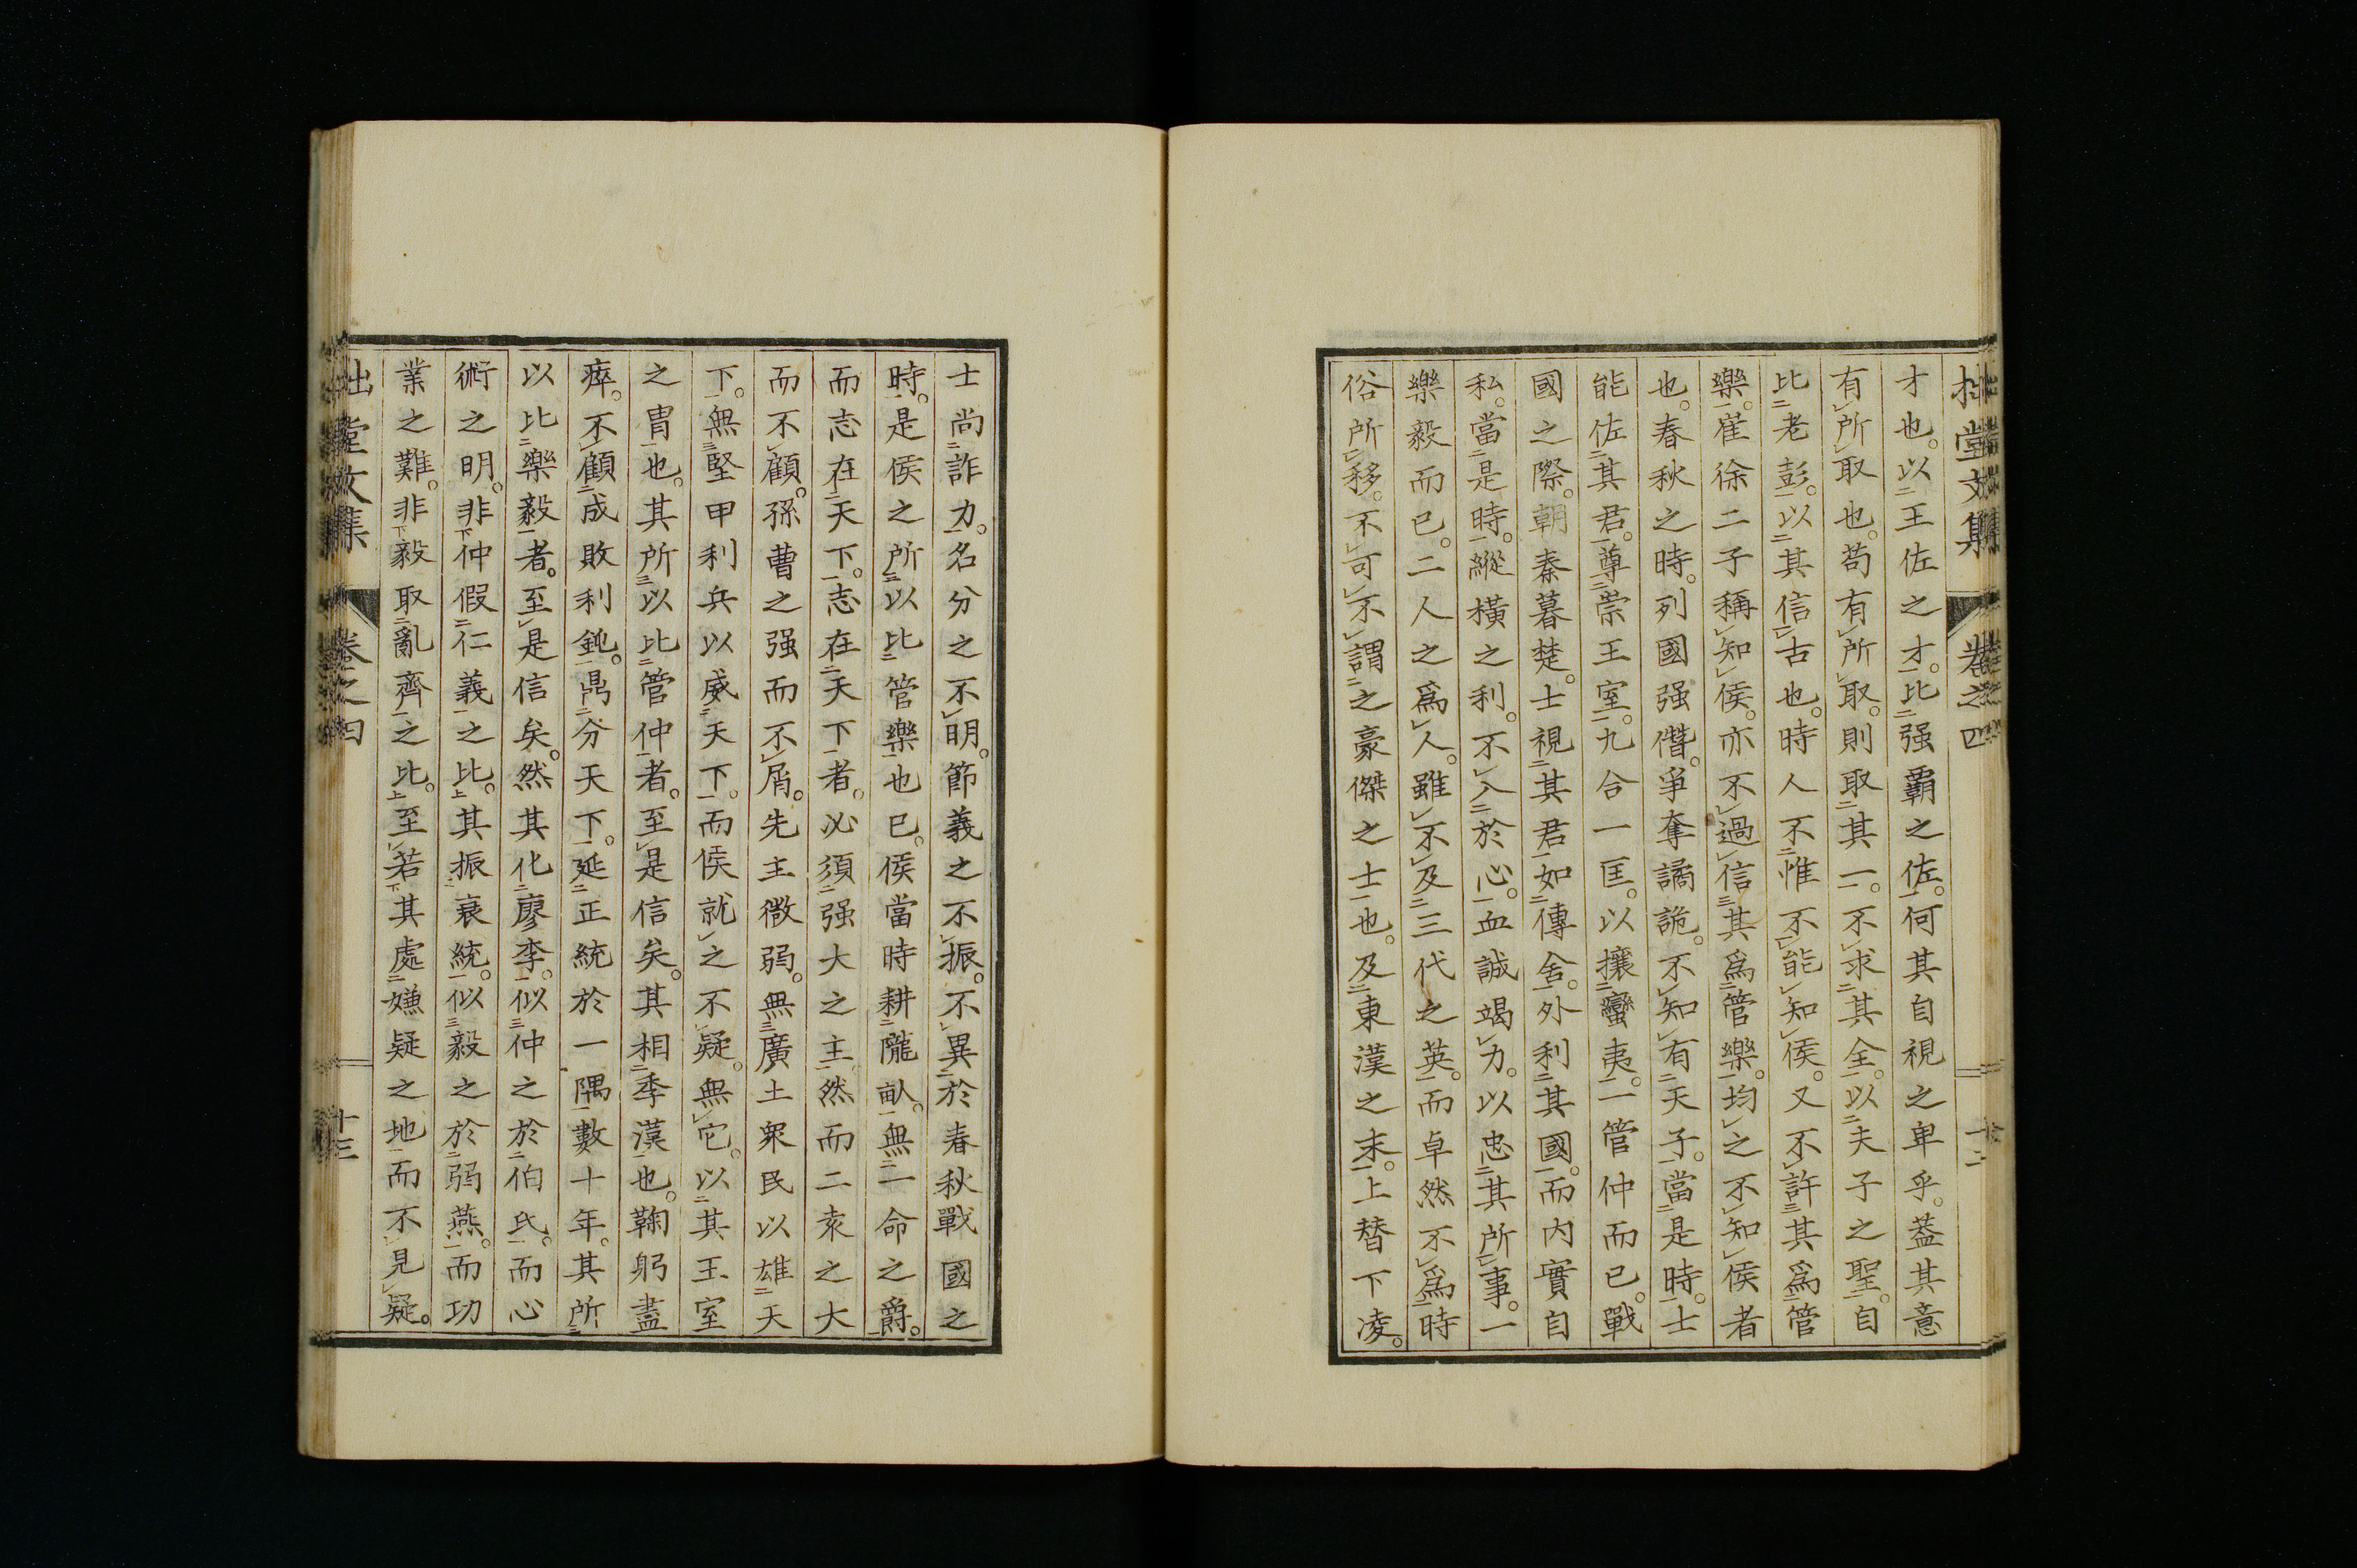 拙堂文集 卷之四 十二
才也。以王佐之才。比强覇之佐。何其自視之卑乎。蓋其意
有所取也。苟有所取。則取其一。不求其全。以夫子之聖。自
比老彭。以其信古也。時人不惟不能知侯。又不許其爲管
樂。崔徐二子稱知侯。亦不過信其爲管樂。均之不知侯者
也。春秋之時。列國强僭。爭奪譎詭。不知有天子。當是時。士
能佐其君。尊崇王室。九合一匡。以攘蠻夷。一管仲而已。戰
國之際。朝秦暮楚。士視其君如傳舍。外利其國。而內實自
私。當是時。縱橫之利。不入於心。血誠竭力。以忠其所事。一
樂毅而已。二人之爲人。雖不及三代之英。而卓然不爲時
俗所移。不可不謂之豪傑之士也。及東漢之末。上替下凌。
士尚詐力。名分之不明。節義之不振。不異於春秋戰國之
時。是侯之所以比管樂也已。侯當時耕隴畝。無一命之爵。
而志在天下。志在天下者。必須强大之主。然而二袁之大
而不顧。孫曹之强而不屑。先主微弱。無廣土衆民以雄天
下。無堅甲利兵以威天下。而侯就之不疑。無它。以其王室
之胄也。其所以比管仲者。至是信矣。其相季漢也。鞠躬盡
瘁。不顧成敗利鈍。鼎分天下。延正統於一隅數十年。其所
以比樂毅者。至是信矣。然其化廖李。似仲之於伯氏。而心
術之明。非仲假仁義之比。其振衰統。似毅之於弱燕。而功
業之難。非毅取亂齊之比。至若其處嫌疑之地。而不見疑。
拙堂文集 卷之四 十三